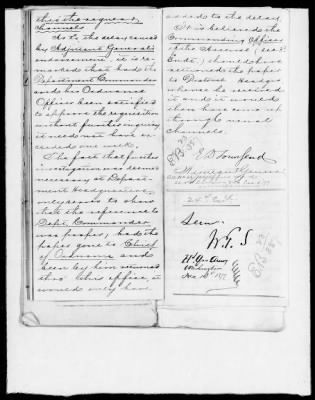 thro the regular
channels.
As to the delay caused
by Adjutant General's
endorsement, it is re-
marked that had the
Department Commander
and his Ordnance
Officer been satisfied
to approve the requisition
without further inquiry
it need not have ex-
ceeded one week.
The fact that further
investigation was deemed
necessary at Depart-
ment Headquarters,
only seems to show
that the reference to
Dept. Commander
was proper; had the
paper gone to Chief
of Ordnance and
been by him returned
thro' this office, it
would only have
added to the delay.
It is believed the
Commanding Officer
of the Arsenal (see 3d
Endt.) should have
returned the paper
to District Headqrs
whence he received
it and it would
then have come up
through usual
channels.
E. D. Townsend
Adjutant General
24th Endt.
Same.
W.T.S
Hd. Qrs. Army
Washington